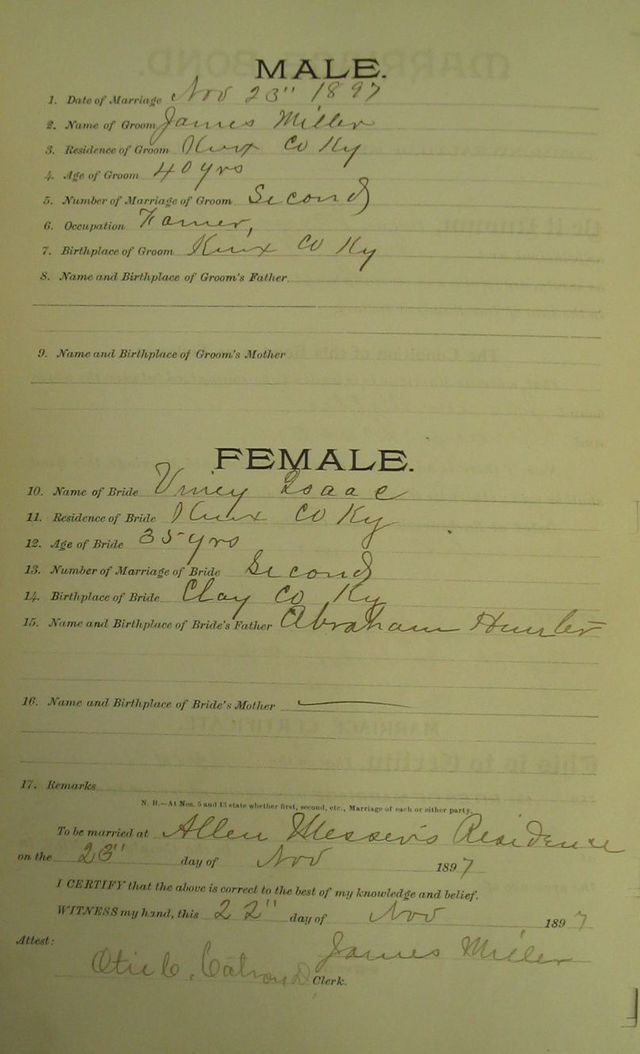 MALE.
1. Date of Marriage Nov 23" 1897
2. Name of Groom James Miller
3. Residence of Groom Knox Co Ky
4. Age of Groom 40 yrs
5. Number of Marriage of Groom Second
6. Occupation Farmer,
7. Birthplace of Groom Knox Co Ky
8. Name and Birthplace of Groom's Father
9. Name and Birthplace of Groom's Mother
FEMALE.
10. Name of Bride Viney Isaac
11. Residence of Bride Knox Co Ky
12. Age of Bride 35 yrs
13. Number of Marriage of Bride Second
14. Birthplace of Bride Clay Co Ky
15. Name and Birthplace of Bride's Father Abraham
16. Name and Birthplace of Bride's Mother
17. Remarks
N. B.—At Nos. 5 and 13 state whether first, second, etc., Marriage of each or either party.
To be married at Allen Messer's Residence
on the 23" day of Nov 1897
I CERTIFY that the above is correct to the best of my knowledge and belief.
WITNESS my hand, this 22" day of Nov 1897
James Miller
Attest:
Clerk.